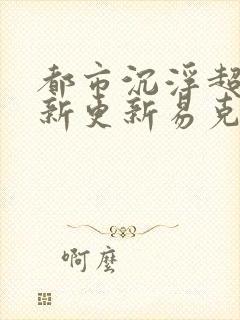 都市沉浮超
新更新易克
啊麼